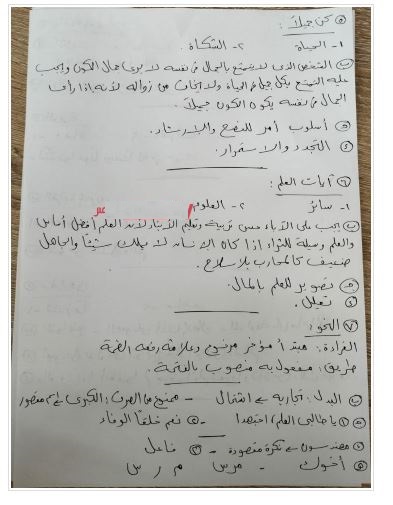 ⑤ كن جميلاً :
١- الحياة ٢- الشكاة
ⓑ الشخص الذى لا يتمتع بالجمال فى نفسه لا يرى جمال الكون ويجب
عليه التمتع بكل جميل فى الحياة ولا يخاف من زواله لأنه إذا رأى
الجمال فى نفسه يكون الكون جميلاً.
أسلوب أمر للنصح والإرشاد.
التجدد والاستمرار.
⑥ آيات العلم :
١- سائر ٢- العلوم
يجب على الآباء حسن تربية وتعليم الأبناء لأن العلم أفضل
والعلم وسيلة للثراء إذا كان الإنسان لا يملك شيئاً والجاهل
ضعيف كالمحارب بلا سلاح.
تصوير للعلم بالمال.
تعليل.
⑦ النحو :
القراءة : مبتدأ مؤخر مرفوع وعلامة رفعه الضمة
طريق : مفعول به منصوب بالفتحة.
البدل : تجاربه اشتمال - ممنوع من الصرف : الكبرى اسم مقصور
يا طالبى العلم اجتهدا - نعم خلقاً الوفاء
مهندسون نكرة مقصودة - فاعل
أخوك - م ر س